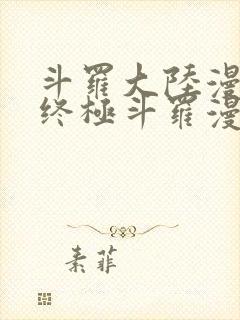 斗羅大陸漫
终極斗羅漫
素菲